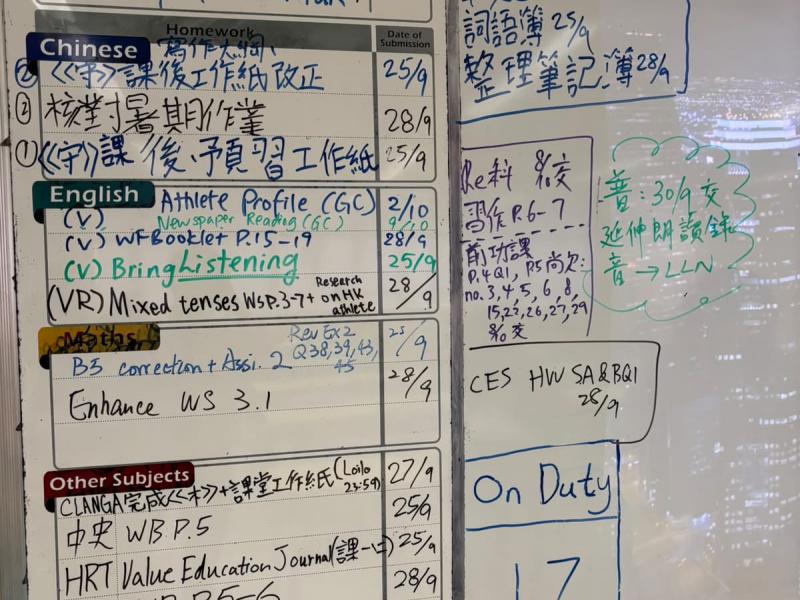 Homework
Date of Submission
Chinese
寫作大綱
② 《守》課後工作紙改正 25/9
② 核對暑期作業 28/9
① 《守》課後、預習工作紙 25/9
English
Athlete Profile (GC) 2/10
(V) Newspaper Reading (GC) 9/10
(V) WF Booklet P.15-19 28/9
(V) Bring Listening 25/9
(VR) Mixed tenses WS P.3-7 + Research on HK athlete 28/9
Maths
B3 correction + Assi. 2 Rev Ex2 Q38,39,43,45 25/9
Enhance WS 3.1 28/9
Other Subjects
CLANGA 完成《禾》+課堂工作紙 (Loilo 23:59) 27/9
中央 WB P.5 25/9
HRT Value Education Journal (課一) 25/9
P.5-6 28/9
詞語簿 25/9
整理筆記簿 28/9
Re科 8/10交
習作 P.6-7
前功課
P.4Q1, P.5尚欠:
no. 3, 4, 5, 6, 8
15, 22, 26, 27, 29
8/10 交
普: 30/9 交
延伸朗讀錄
音 → LLN
CES HW SA & BQ1
28/9
On Duty
17